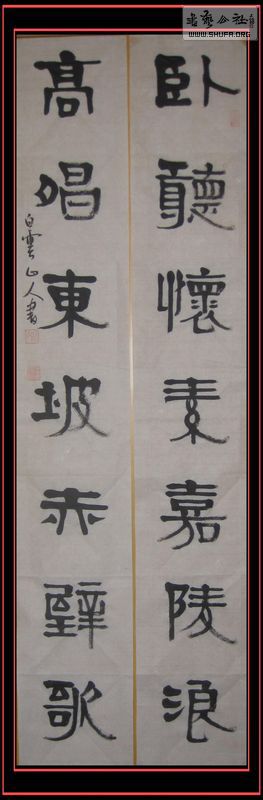 臥聽懷素嘉陵浪
高唱東坡赤壁歌
白雲山人書
书艺公社
WWW.SHUFA.ORG